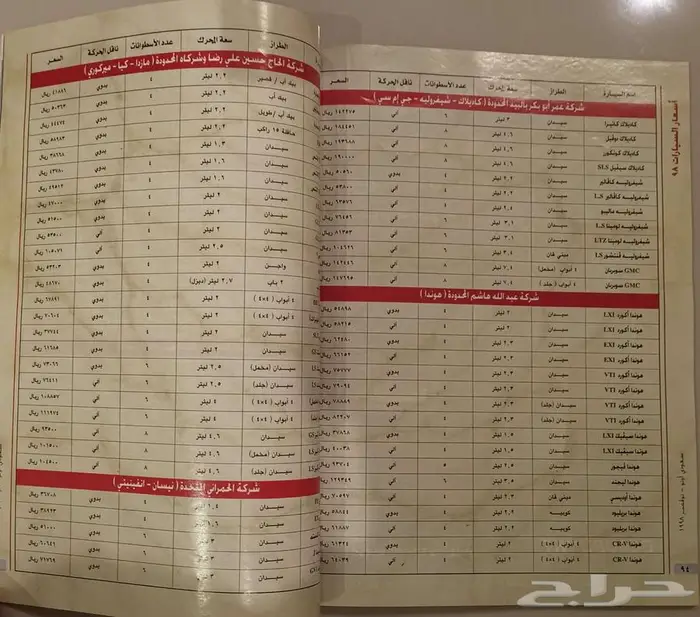 أسعار السيارات ٩٨
اسم السيارة الطراز سعة المحرك عدد الأسطوانات ناقل الحركة السعر
شركة عمر أبو بكر بالبيد المحدودة ( كاديلاك - شيفروليه - جي إم سي )
كاديلاك كتيرا سيدان ٣ ليتر ٦ آلي ١٤٢٢٧٥ ريال
كاديلاك دوفيل سيدان ٤,٦ ليتر ٨ آلي ١٨٤٤٥١ ريال
كاديلاك كونكورز سيدان ٤,٦ ليتر ٨ آلي ١٩٣٦٨٨ ريال
كاديلاك سيفيل SLS سيدان ٤,٦ ليتر ٨ آلي ١٩٠٠٠٠ ريال
شيفروليه كافالير سيدان ٢,٢ ليتر ٤ يدوي ٥٠٥٦٠ ريال
شيفروليه كافالير LS سيدان ٢,٢ ليتر ٤ آلي ٥٣٨٠٠ ريال
شيفروليه ماليبو سيدان ٢,٤ ليتر ٤ آلي ٦٣٥٧٦ ريال
شيفروليه لومينا LS سيدان ٣,١ ليتر ٦ آلي ٧٦٤٥٦ ريال
شيفروليه لومينا LTZ سيدان ٣,١ ليتر ٦ آلي ٨١٣٥٣ ريال
شيفروليه فنتشور LS ميني فان ٣,٤ ليتر ٦ آلي ١٠٤٦٢٦ ريال
GMC سوبربان ٤ أبواب ( مخمل ) ٧,٤ ليتر ٨ آلي ١٤٢٤٤٦ ريال
GMC سوبربان ٤ أبواب ( جلد ) ٧,٤ ليتر ٨ آلي ١٤٧٦٩٥ ريال
شركة عبد الله هاشم المحدودة ( هوندا )
هوندا أكورد LXI سيدان ٢ ليتر ٤ يدوي ٥٤٨٩٨ ريال
هوندا أكورد LXI سيدان ٢ ليتر ٤ آلي ٥٨٢١٥ ريال
هوندا أكورد EXI سيدان ٢,٣ ليتر ٤ يدوي ٦٢٤٨٠ ريال
هوندا أكورد EXI سيدان ٢,٣ ليتر ٤ آلي ٦٦١٥٥ ريال
هوندا أكورد VTI سيدان ٢,٣ ليتر ٤ يدوي ٧٥٧٧٧ ريال
هوندا أكورد VTI سيدان ٢,٣ ليتر ٤ آلي ٧٩٠٩٤ ريال
هوندا أكورد VTI سيدان (جلد) ٢,٣ ليتر ٤ يدوي ٧٨٨٨٩ ريال
هوندا أكورد VTI سيدان (جلد) ٢,٣ ليتر ٤ آلي ٨٢٢٠٧ ريال
هوندا سيفيك LXI سيدان ١,٥ ليتر ٤ يدوي ٣٧٨٦٨ ريال
هوندا سيفيك LXI سيدان ١,٥ ليتر ٤ آلي ٤٠٠٣٨ ريال
هوندا ليجند سيدان ٣,٥ ليتر ٦ آلي
هوندا أوديسي ميني فان ٢,٣ ليتر ٤ آلي ٧٠٥٩٧ ريال
هوندا بريليود كوبيه ٢,٢ ليتر ٤ يدوي ٥٨٨٤٤ ريال
هوندا بريليود كوبيه ٢,٢ ليتر ٤ آلي ٦١٨٨٧ ريال
هوندا CR-V ٤ أبواب ( ٤×٤ ) ٢ ليتر ٤ يدوي ٦١٣٢٤ ريال
هوندا CR-V ٤ أبواب ( ٤×٤ ) ٢ ليتر ٤ آلي ٦٤٠٣٩ ريال
سعودي أوتو - نوفمبر ١٩٩٨
٩٤
الطراز سعة المحرك عدد الأسطوانات ناقل الحركة السعر
شركة الحاج حسين علي رضا وشركاه المحدودة ( مازدا - كيا - ميركوري )
بيك أب / قصير ٢,٢ ليتر ٤ يدوي ٤١٨٩١ ريال
بيك أب ٢,٢ ليتر ٤ يدوي ٥٠٣٦٥ ريال
بيك أب / طويل ٢,٢ ليتر ٤ يدوي ٤٤٤٧٤ ريال
حافلة ١٥ راكب ٢,٢ ليتر ٤ يدوي ٥٨٩٨٣ ريال
سيدان ١,٣ ليتر ٤ يدوي ٣٨٦٦٨ ريال
سيدان ١,٦ ليتر ٤ يدوي ٤٣٧٨٠ ريال
سيدان ١,٦ ليتر ٤ آلي ٤٩٥١٢ ريال
سيدان ٢ ليتر ٤ يدوي ٤٧٠٠٠ ريال
سيدان ٢ ليتر ٤ يدوي ٥١٥٠٠ ريال
سيدان ٢ ليتر ٤ آلي ٥٣٥٠٠ ريال
سيدان ٢,٥ ليتر ٦ آلي ١٠٥٠٧١ ريال
واجن ٢ ليتر ٤ يدوي ٥٣٢٠٣ ريال
٢ باب ٢,٧ ليتر (ديزل) ٤ يدوي ٤٨٦٧٠ ريال
٤ أبواب (٤×٤) ٢ ليتر ٤ يدوي ٦٧٨٩١ ريال
٤ أبواب (٤×٤) ٢ ليتر ٤ آلي ٧٠٦٠٤ ريال
سيدان ٢ ليتر ٤ يدوي ٣٧٧٤٤ ريال
سيدان ٢ ليتر ٤ آلي ٦٦٦٨٥ ريال
سيدان (مخمل) ٢,٥ ليتر ٦ يدوي ٧٣٠٦٦ ريال
سيدان (جلد) ٢,٥ ليتر ٦ آلي ٧٦٤١١ ريال
٤ أبواب ( ٤×٤ ) ٤ ليتر ٦ آلي ١٠٨٨٥٧ ريال
٤ أبواب ( ٤×٤ ) ٤ ليتر ٦ آلي ١١١٩٧٤ ريال
سيدان ٤,٦ ليتر ٨ آلي ٩٣٥٠٠ ريال
سيدان (مخمل) ٤,٦ ليتر ٨ آلي ١٠١٥٠٠ ريال
سيدان (جلد) ٤,٦ ليتر ٨ آلي ١٠٤٥٠٠ ريال
شركة الحمراني المتحدة ( نيسان - انفينيتي )
سيدان ١,٤ ليتر ٤ يدوي ٣٦٧٠٨ ريال
سيدان ١,٦ ليتر ٤ يدوي ٣٨٩٢٣ ريال
سيدان ٤ يدوي ٥٦٠٠٠ ريال
سيدان ٣ ليتر ٦ يدوي ٦٠٦٤٦ ريال
سيدان ٣ ليتر ٦ آلي ٧١٧٦٩ ريال
حراج